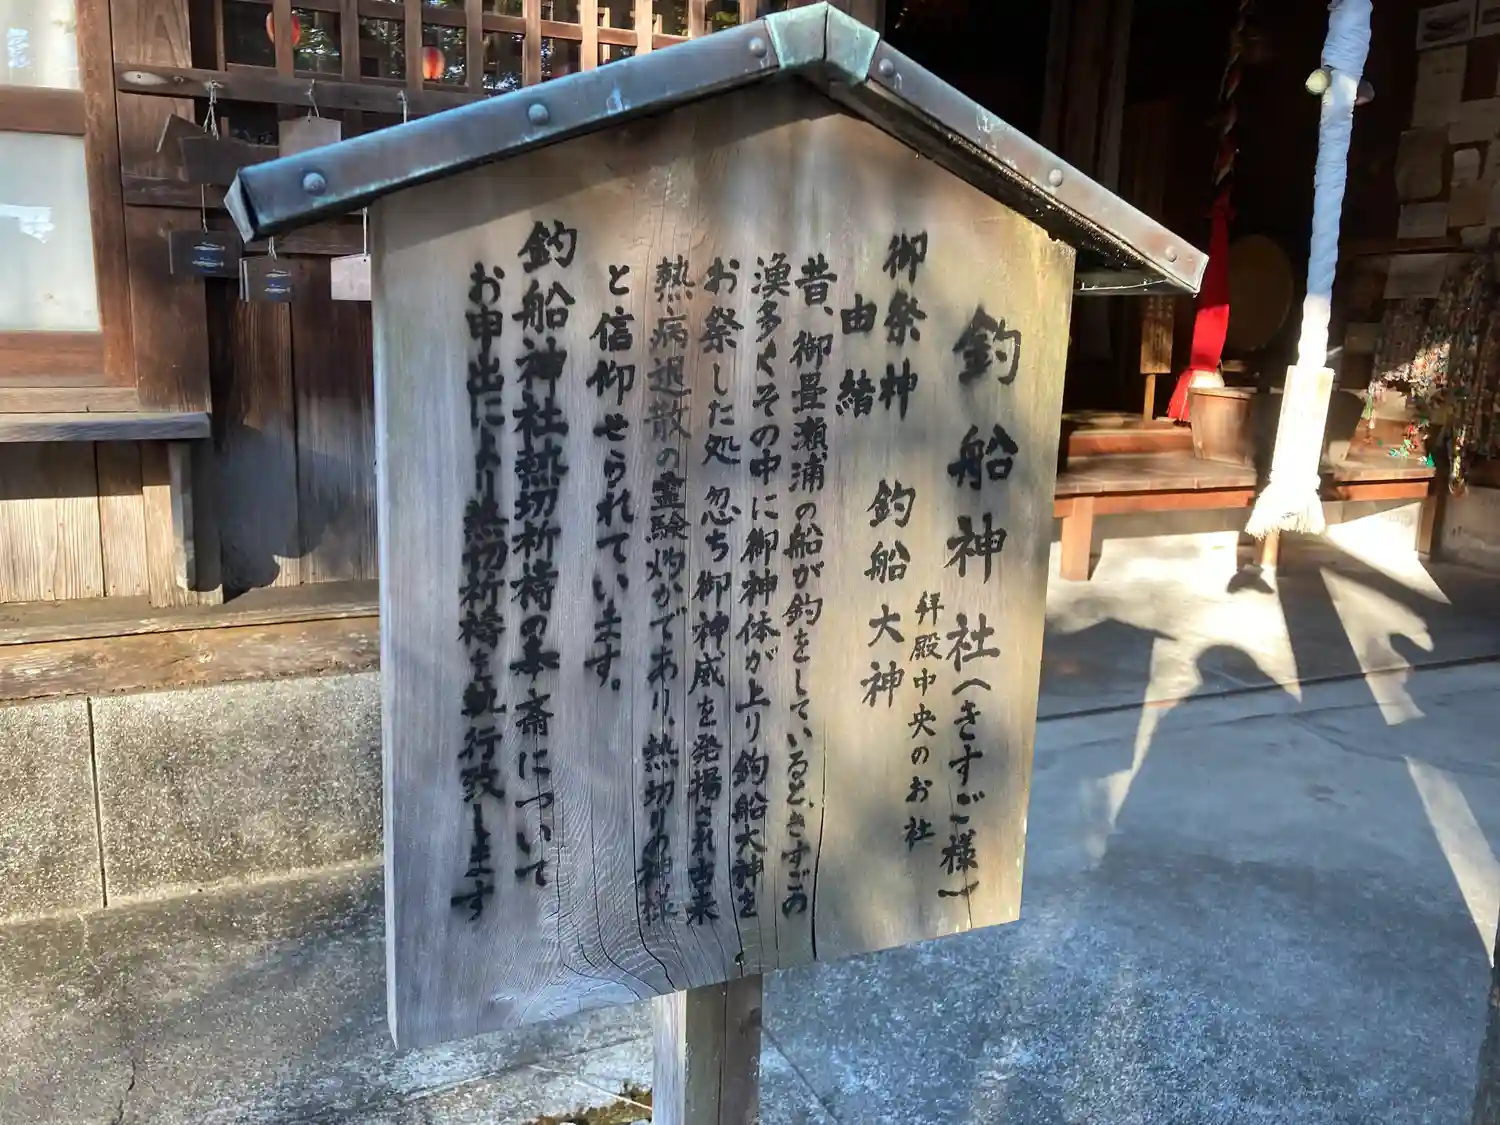 釣船神社(きすご様)
拝殿中央のお社
御祭神 釣船大神
由緒
昔、御畳瀬浦の船が釣をしていると、きすごの
漁多くその中に御神体が上り釣船大神を
お祭した処 忽ち御神威を発揚され古来
熱病退散の霊験灼かであり、熱切りの神様
と信仰せられています。
釣船神社熱切祈祷の本斎について
お申出により熱切祈祷を執行致します